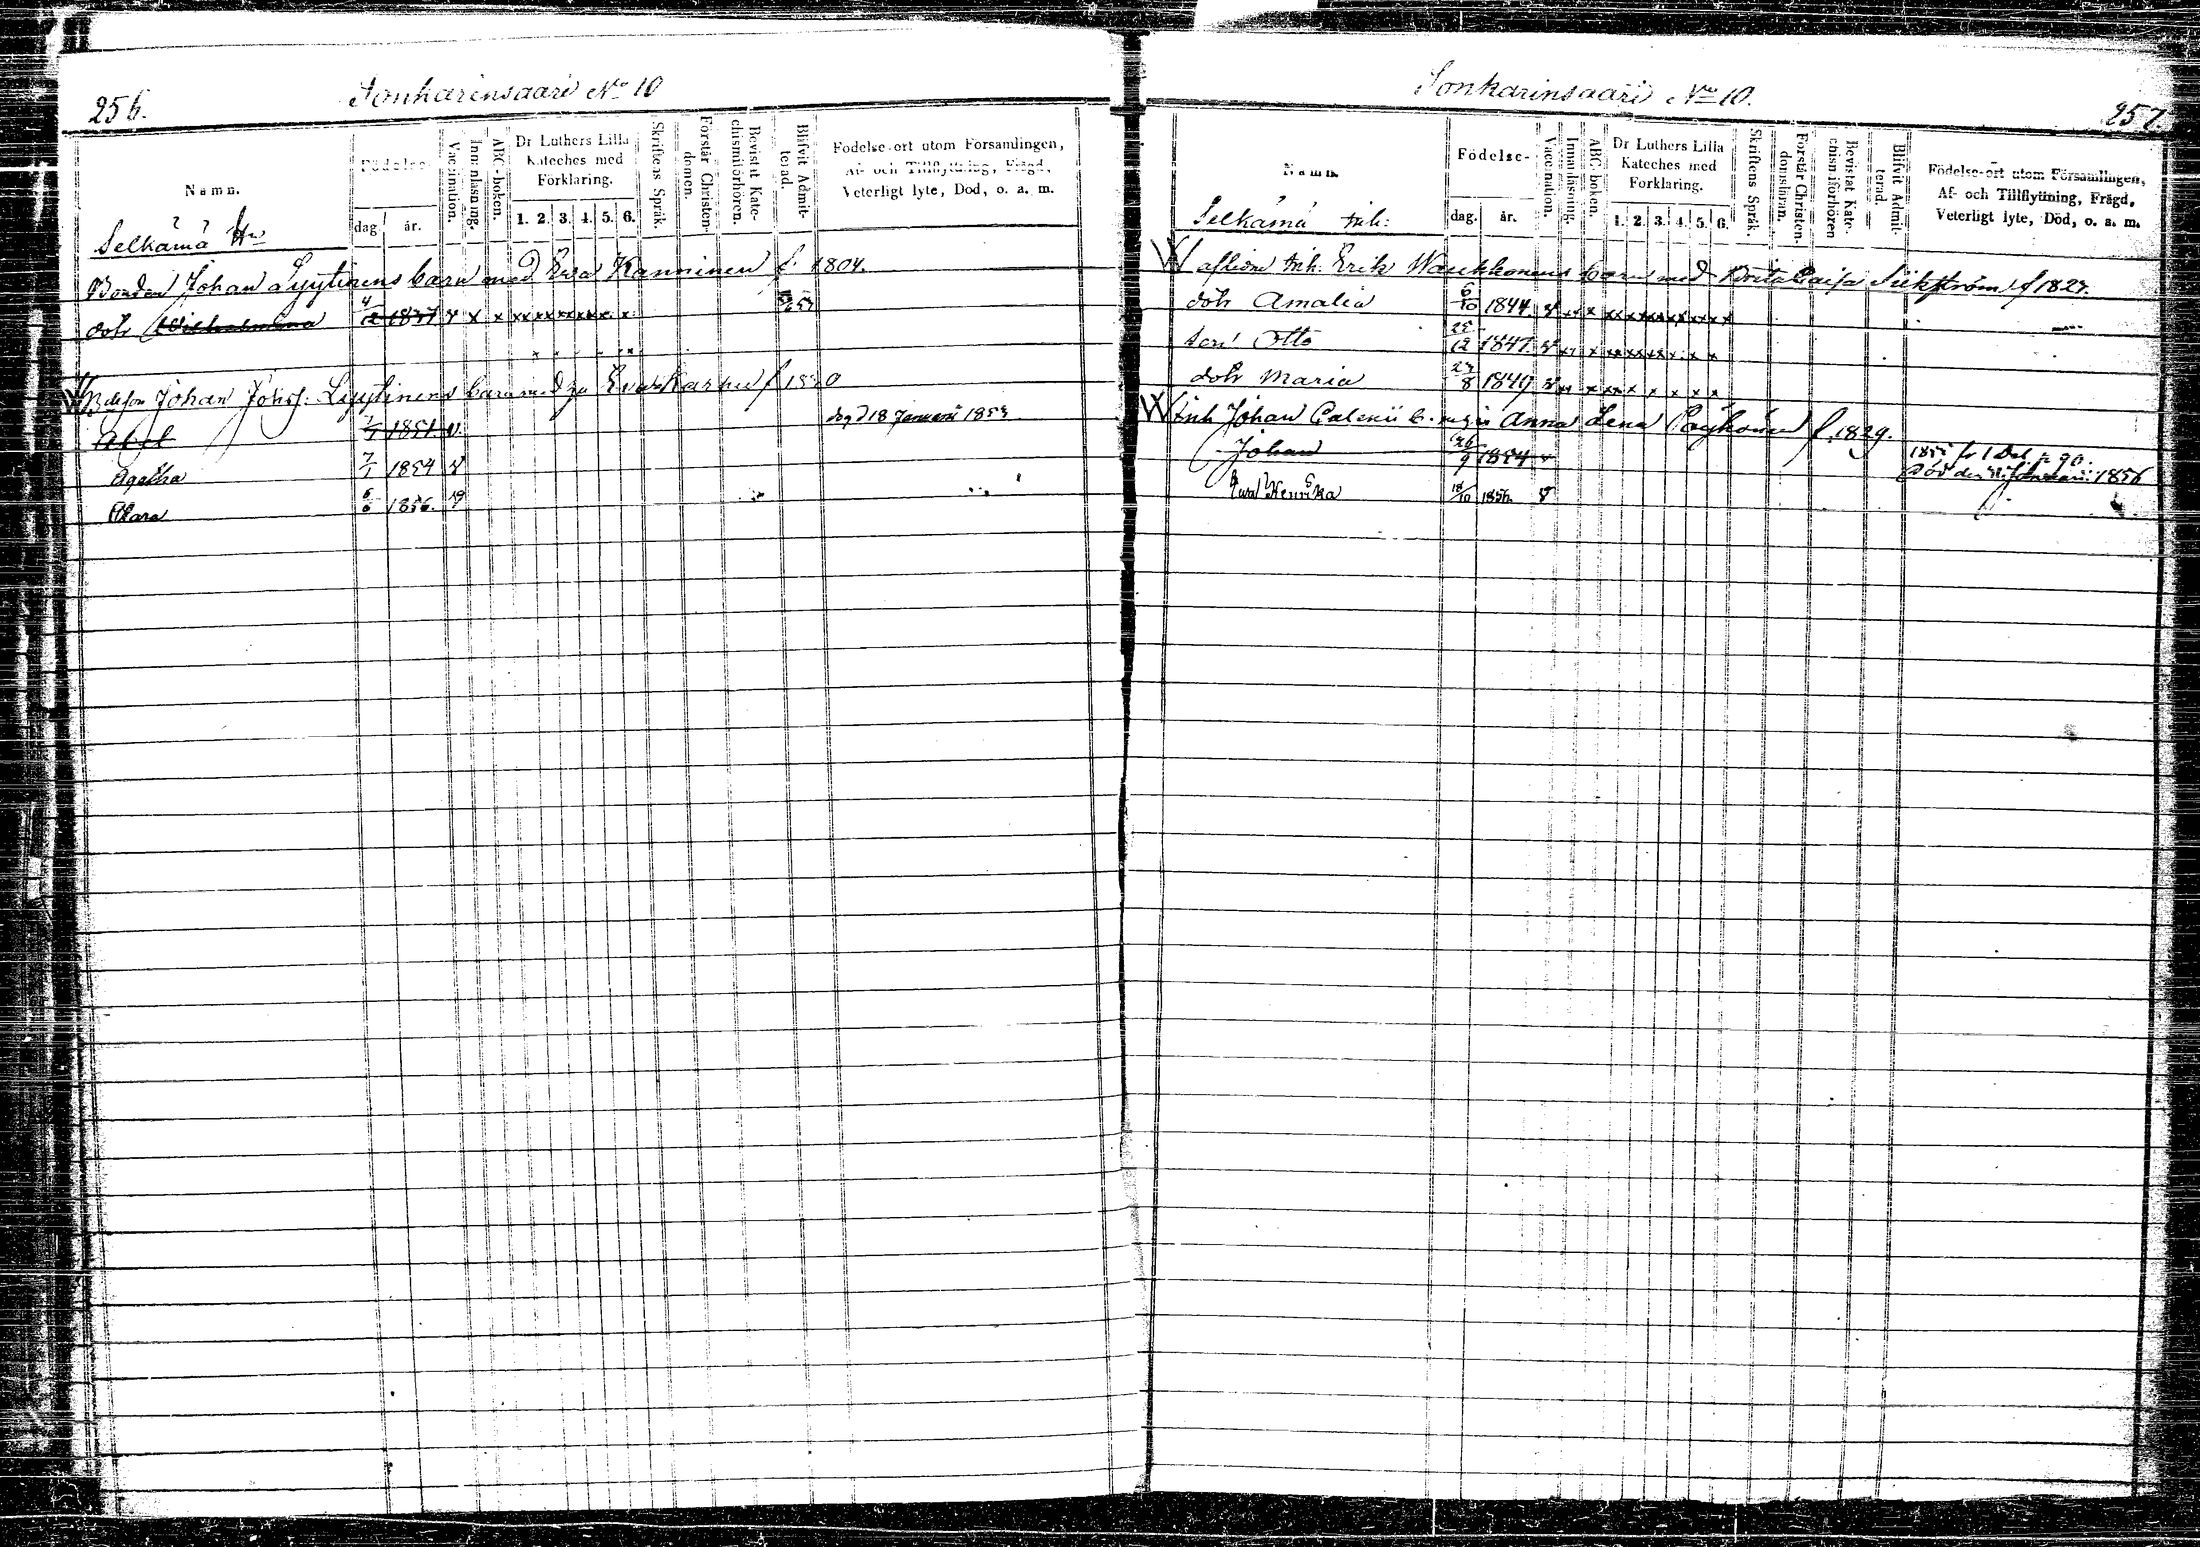 256.
Sonkarinsaari No 10
Namn.
Födelse-
dag
år.
Vaccination.
Innanläsning.
ABC-boken.
Dr Luthers Lilla
Kateches med
Förklaring.
1. 2. 3. 4. 5. 6.
Skriftens Språk.
Förstår Christen-
domen.
Bevistat Kate-
chismiförhören.
Blifvit Admit-
terad.
Födelse-ort utom Församlingen,
Af- och Tillflyttning, Frägd,
Veterligt lyte, Död, o. a. m.
Selkämä
Bonden Johan Lyytinens barn med Eva Kanninen f. 1804.
dotr Wilhelmina 4/12 1837 v x x xx xx xx xx x x
Johan Johsf. Lyytinens barn med Eva Karhu f 1820
Abel 1851. v. 18 Januarii 1853
Agatha 7/1 1854 v
Clara 6/6 1856.
257.
Sonkarinsaari No 10.
Namn.
Födelse-
dag.
år.
Vaccination.
Innanläsning.
ABC-boken.
Dr Luthers Lilla
Kateches med
Förklaring.
1. 2. 3. 4. 5. 6.
Skriftens Språk.
Förstår Christen-
domsläran.
Bevistat Kate-
chismiförhören
Blifvit Admit-
terad.
Födelse-ort utom Församlingen,
Af- och Tillflyttning, Frägd,
Veterligt lyte, Död, o. a. m.
Selkämä inh:
aflidne inh. Erik Waukkonens barn med Brita Caisa f 1827.
dotr Amalia 6/10 1844. v
son Otto 25/12 1847. v
dotr Maria 27/8 1849. v
inh Johan Anna Lena f. 1829.
Johan 26/9 1854 v 1855 fr 1 Del p. 90.
Död den Januarii 1856
Henrika 18/10 1856. v